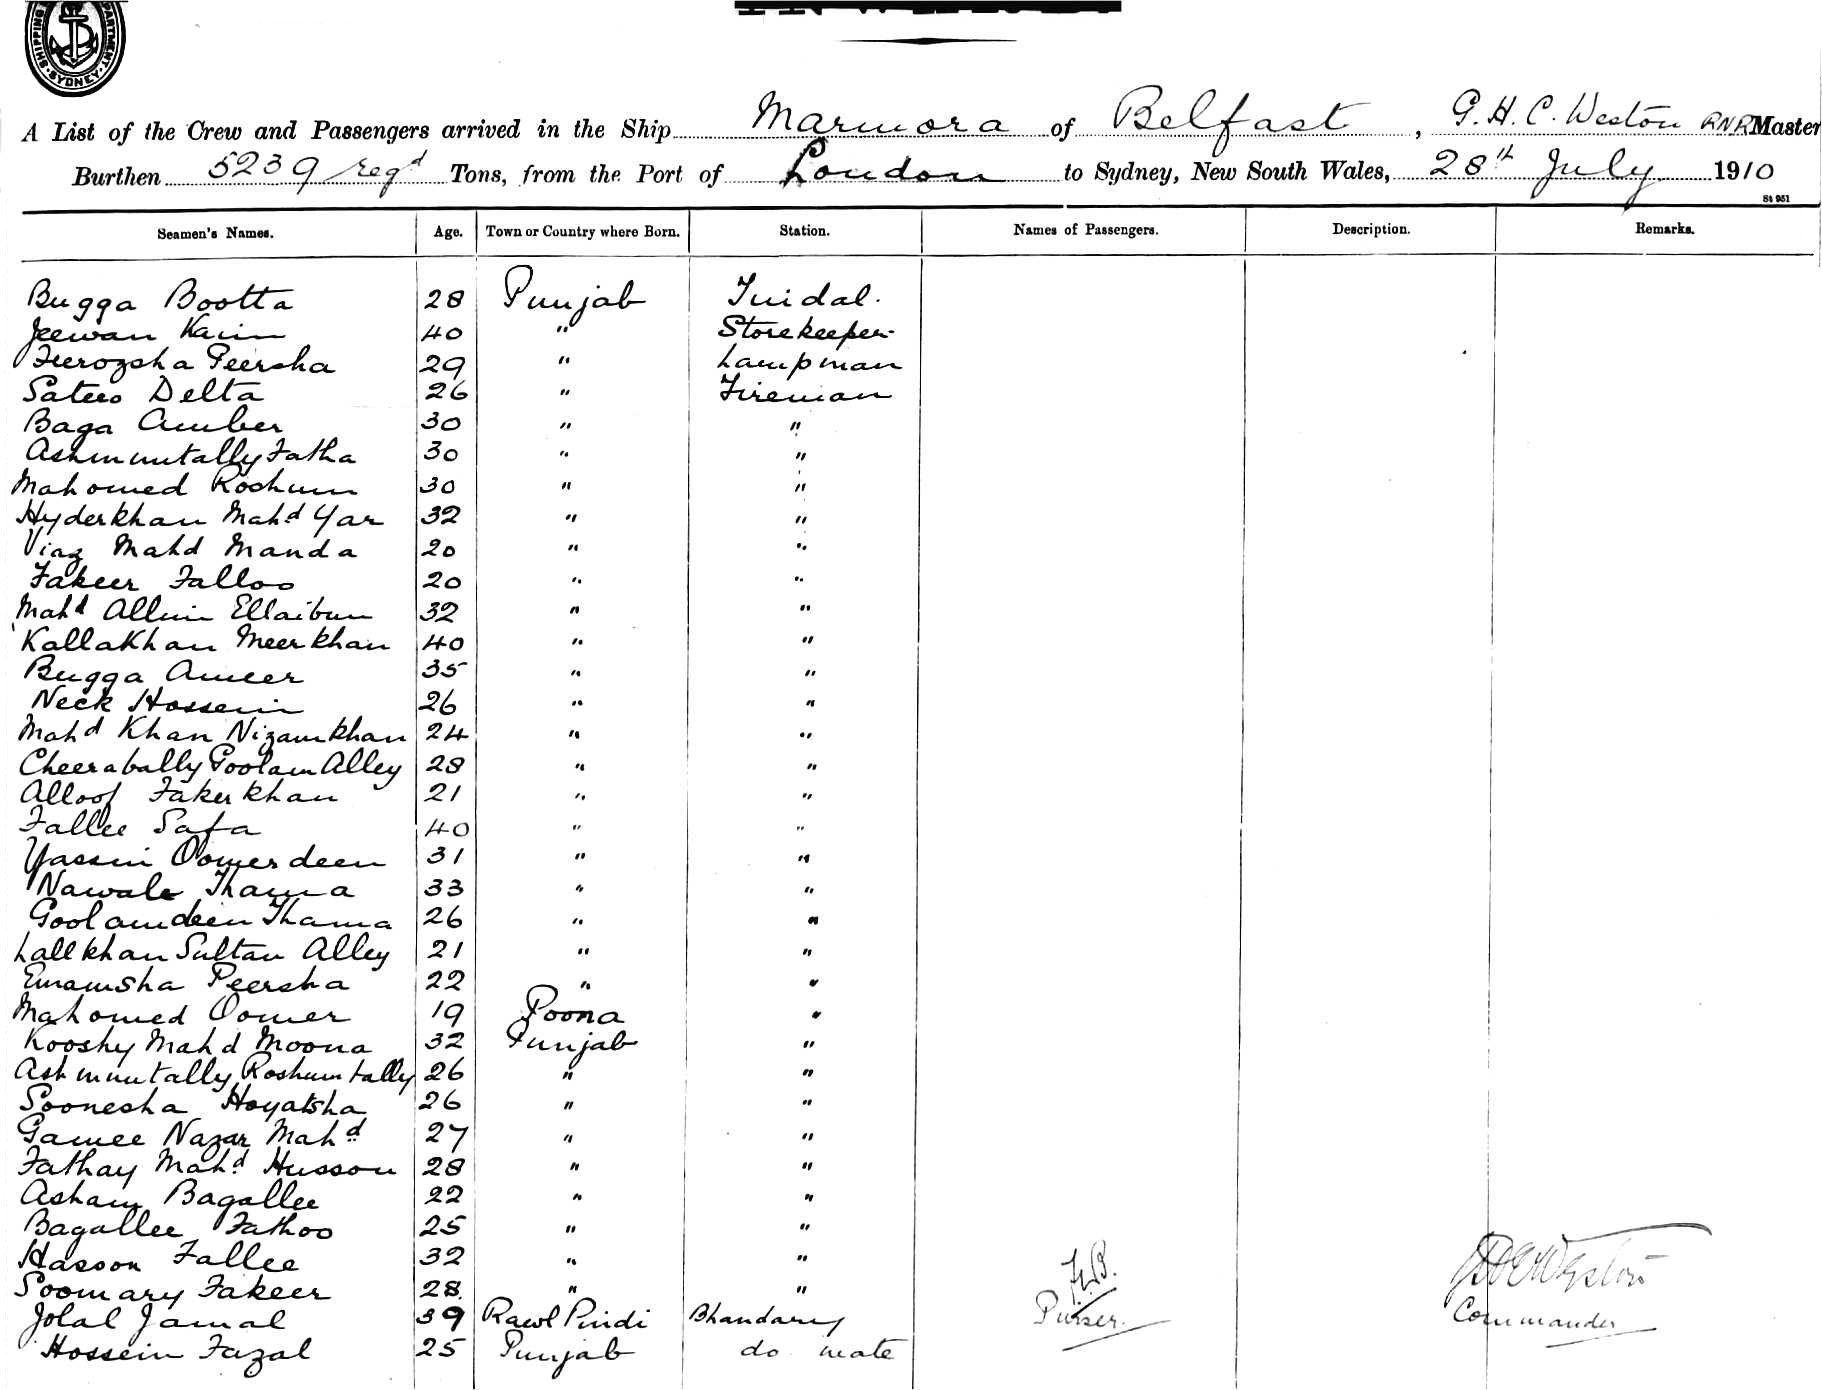 SHIPPING DEPARTMENT SYDNEY
A List of the Crew and Passengers arrived in the Ship Marmora of Belfast, G. H. C. Weston RNR Master
Burthen 5239 regd Tons, from the Port of London to Sydney, New South Wales, 28th July 1910
St 951
Seamen's Names. Age. Town or Country where Born. Station. Names of Passengers. Description. Remarks.
Bugga Bootta 28 Punjab Tindal.
Jeewan Karim 40 " Storekeeper
Feerozsha Peersha 29 " Lampman
Delta 26 " Fireman
Baga Amber 30 " "
Ashmutally Fatha 30 " "
Mahomed Roshun 30 " "
Hyderkhan Mahd Yar 32 " "
Viaz Mahd Manda 20 " "
Fakeer Falloo 20 " "
Mahd Allim Ellaibux 32 " "
Kallakhan Meerkhan 40 " "
Bugga Ameer 35 " "
Neck Hossein 26 " "
Mahd Khan Nizamkhan 24 " "
Cheerabally Goolam Alley 28 " "
Alloof Fakerkhan 21 " "
Fallee Safa 40 " "
Yassin Oomerdeen 31 " "
Nawale Thama 33 " "
Goolamdeen Thama 26 " "
Lallkhan Sultan Alley 21 " "
Emamsha Peersha 22 " "
Mahomed Oomer 19 Poona "
Kooshy Mahd Moona 32 Punjab "
Ashmutally Roshumtally 26 " "
Soonesha Hoyatsha 26 " "
Gamee Nazar Mahd 27 " "
Fathay Mahd Husson 28 " "
Asham Bagallee 22 " "
Bagallee Fathoo 25 " "
Hasson Fallee 32 " "
Soomary Fakeer 28. " "
Jolal Jamal 39 Rawl Pindi Bhandary Purser. Commander
Hossein Fazal 25 Punjab do mate